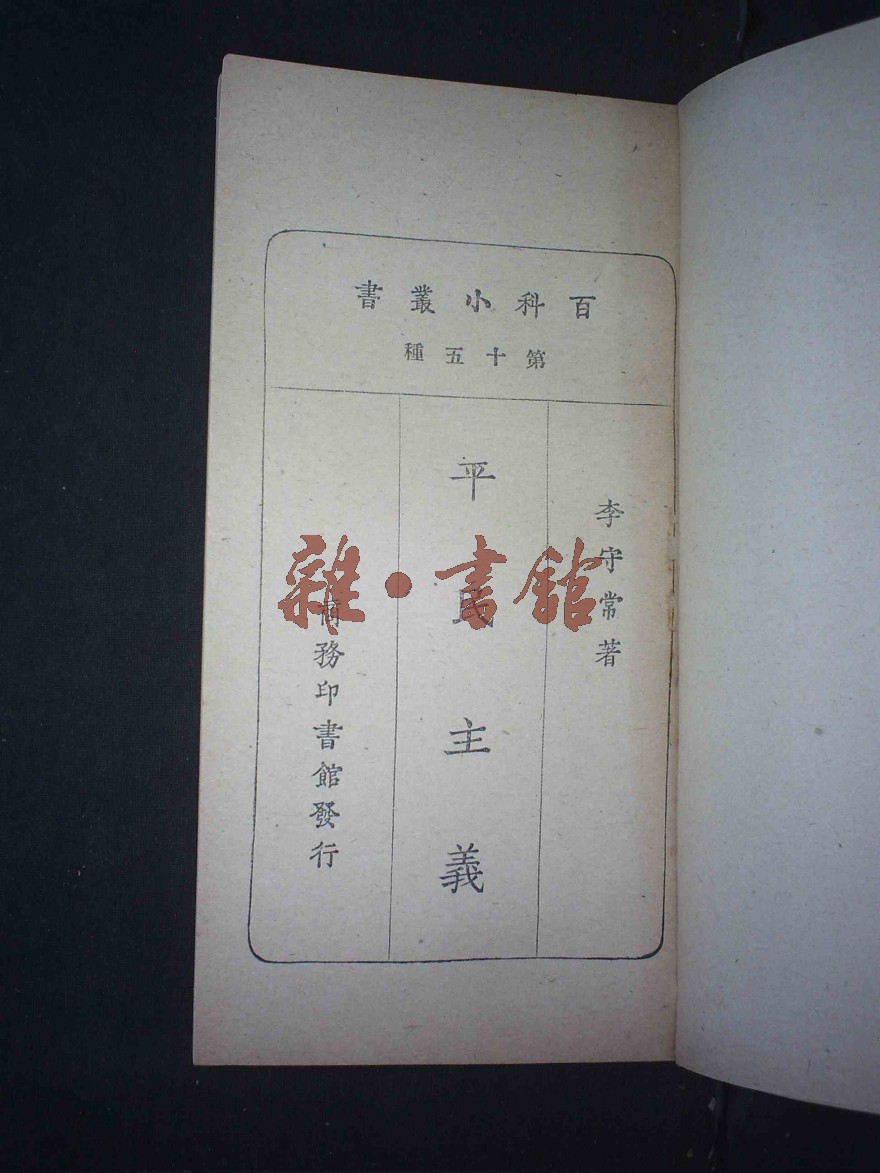 百科小叢書
第十五種
李守常著
平民主義
商務印書館發行
雜·書館